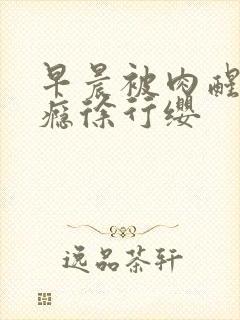 早晨被肉醒
瘾徐行缨
逸品茶轩